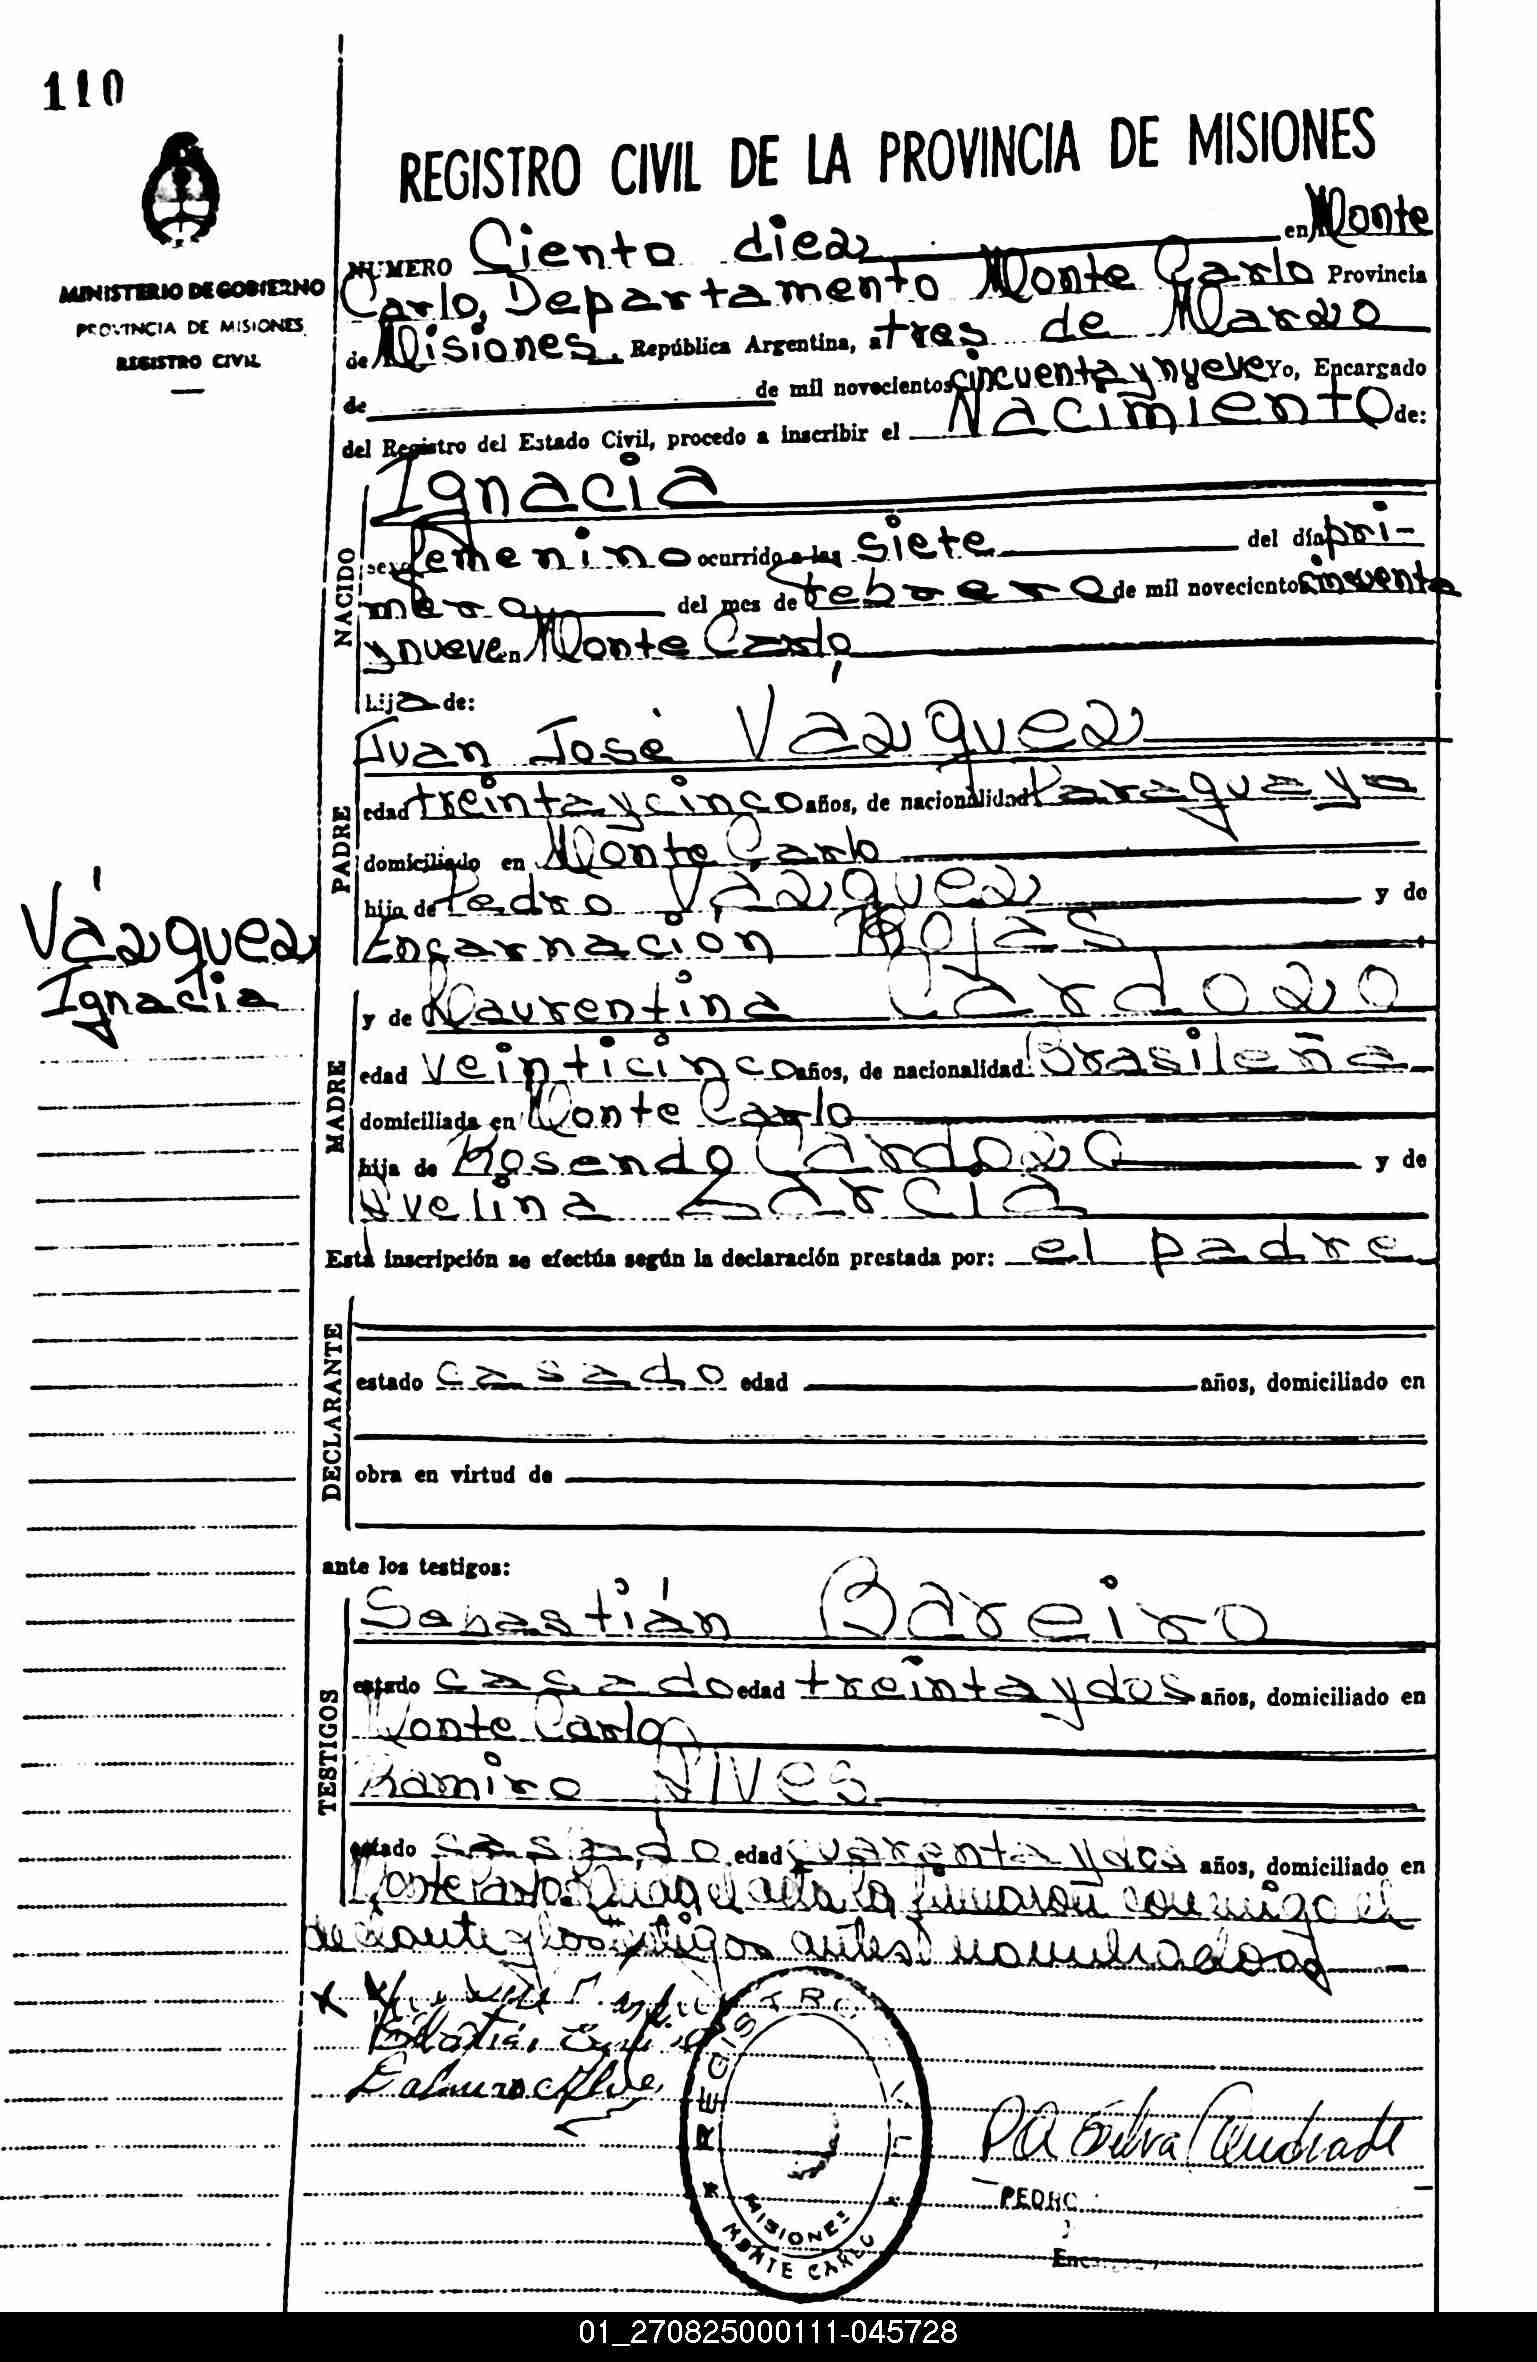 110
REGISTRO CIVIL DE LA PROVINCIA DE MISIONES
MINISTERIO DE GOBIERNO
PROVINCIA DE MISIONES
REGISTRO CIVIL
NUMERO Ciento diez en Monte
Carlo, Departamento Monte Carlo Provincia
de Misiones. República Argentina, a tres de Marzo
de de mil novecientos cincuenta y nueve Yo, Encargado
del Registro del Estado Civil, procedo a inscribir el Nacimiento de:
NACIDO
Ignacia
sexo femenino ocurrido a las siete del día pri-
mero del mes de febrero de mil novecientos cincuenta
y nueve en Monte Carlo,
hija de:
PADRE
Juan José Vázquez
edad treinta y cinco años, de nacionalidad Paraguaya
domiciliado en Monte Carlo
hijo de Pedro Vázquez y de
Encarnación Rojas
Vázquez
Ignacia
MADRE
y de Laurentina Cardozo
edad veinticinco años, de nacionalidad Brasileña
domiciliada en Monte Carlo
hija de Rosendo Cardozo y de
Avelina Garcia
Esta inscripción se efectúa según la declaración prestada por: el padre
DECLARANTE
estado casado edad años, domiciliado en
obra en virtud de
ante los testigos:
TESTIGOS
Sebastián Bareiro
estado casado edad treinta y dos años, domiciliado en
Monte Carlo
Ramiro Alves
estado casado edad cuarenta y dos años, domiciliado en
Monte Carlo. el acta la firmaron conmigo el
y los testigos antes nombrados
REGISTRO CIVIL
MISIONES
MONTE CARLO
P A Silva Andrade
PEDRO
01_270825000111-045728